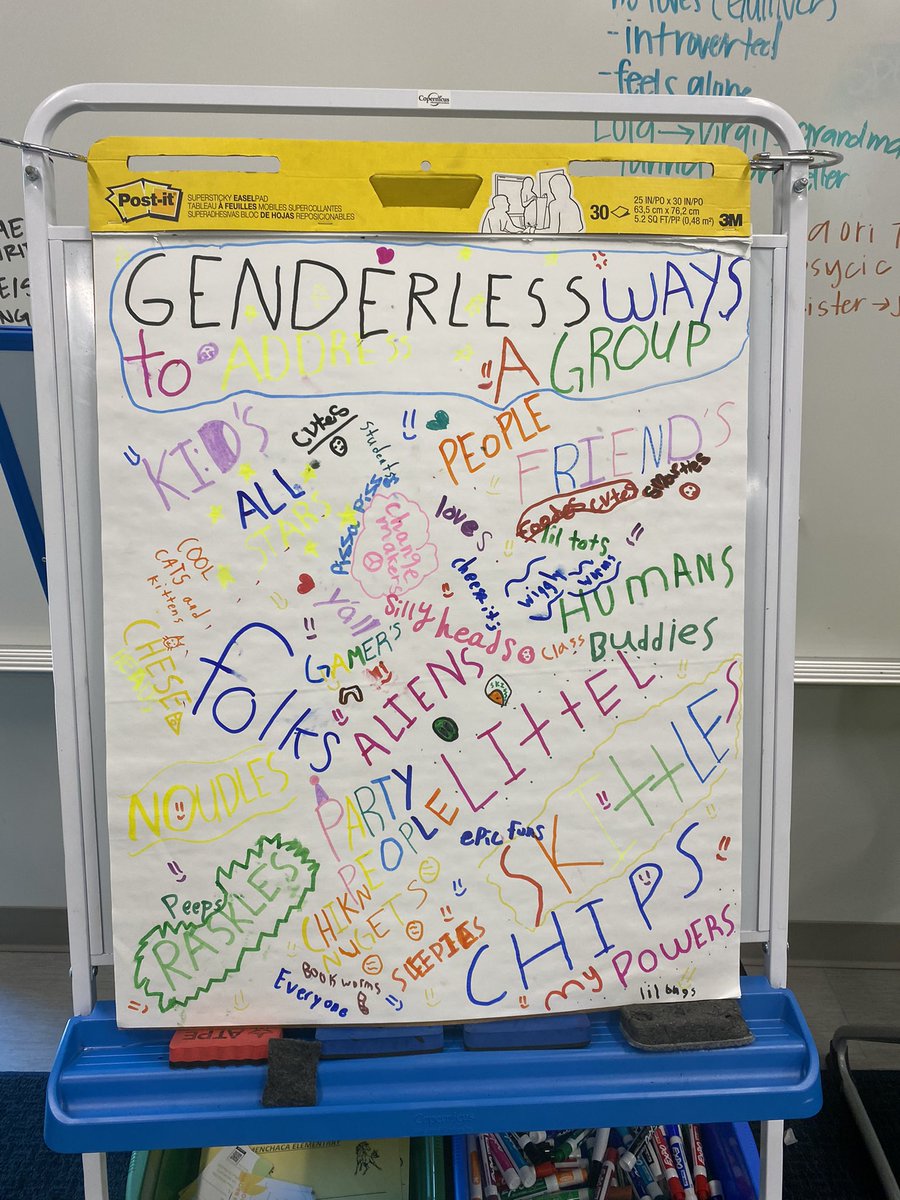 no loves (Gulliver)
-introverted
-feels alone
Copernicus
Post-it
SUPERSTICKY EASEL PAD
TABLEAU À FEUILLES MOBILES SUPER COLLANTES
SUPERADHESIVAS BLOC DE HOJAS REPOSICIONABLES
30
25 IN/PO x 30 IN/PO
63,5 cm x 76,2 cm
5.2 SQ FT/PI² (0,48 m²)
3M
GENDERLESS WAYS
to ADDRESS A GROUP
KID'S
cutes
students
PEOPLE
FRIEND'S
ALL
STARS
Pissa Piss
change
makers
loves
smarties
lil tots
COOL
CATS and
kittens
y'all
cheezits
wiggly
worms
HUMANS
silly heads
class Buddies
CHESE
folks
GAMER'S
ALIENS
LIttEL
SKIttLES
NOUDLES
PARTY
PEOPLE
epic funs
Peeps
RASKLES
CHIKN
NUGETS
SLEEPIES
CHIPS
Book worms
Everyone
my POWERS
lil bugs
ATPE
Copernicus
MENCHACA ELEMENTARY
EXPO